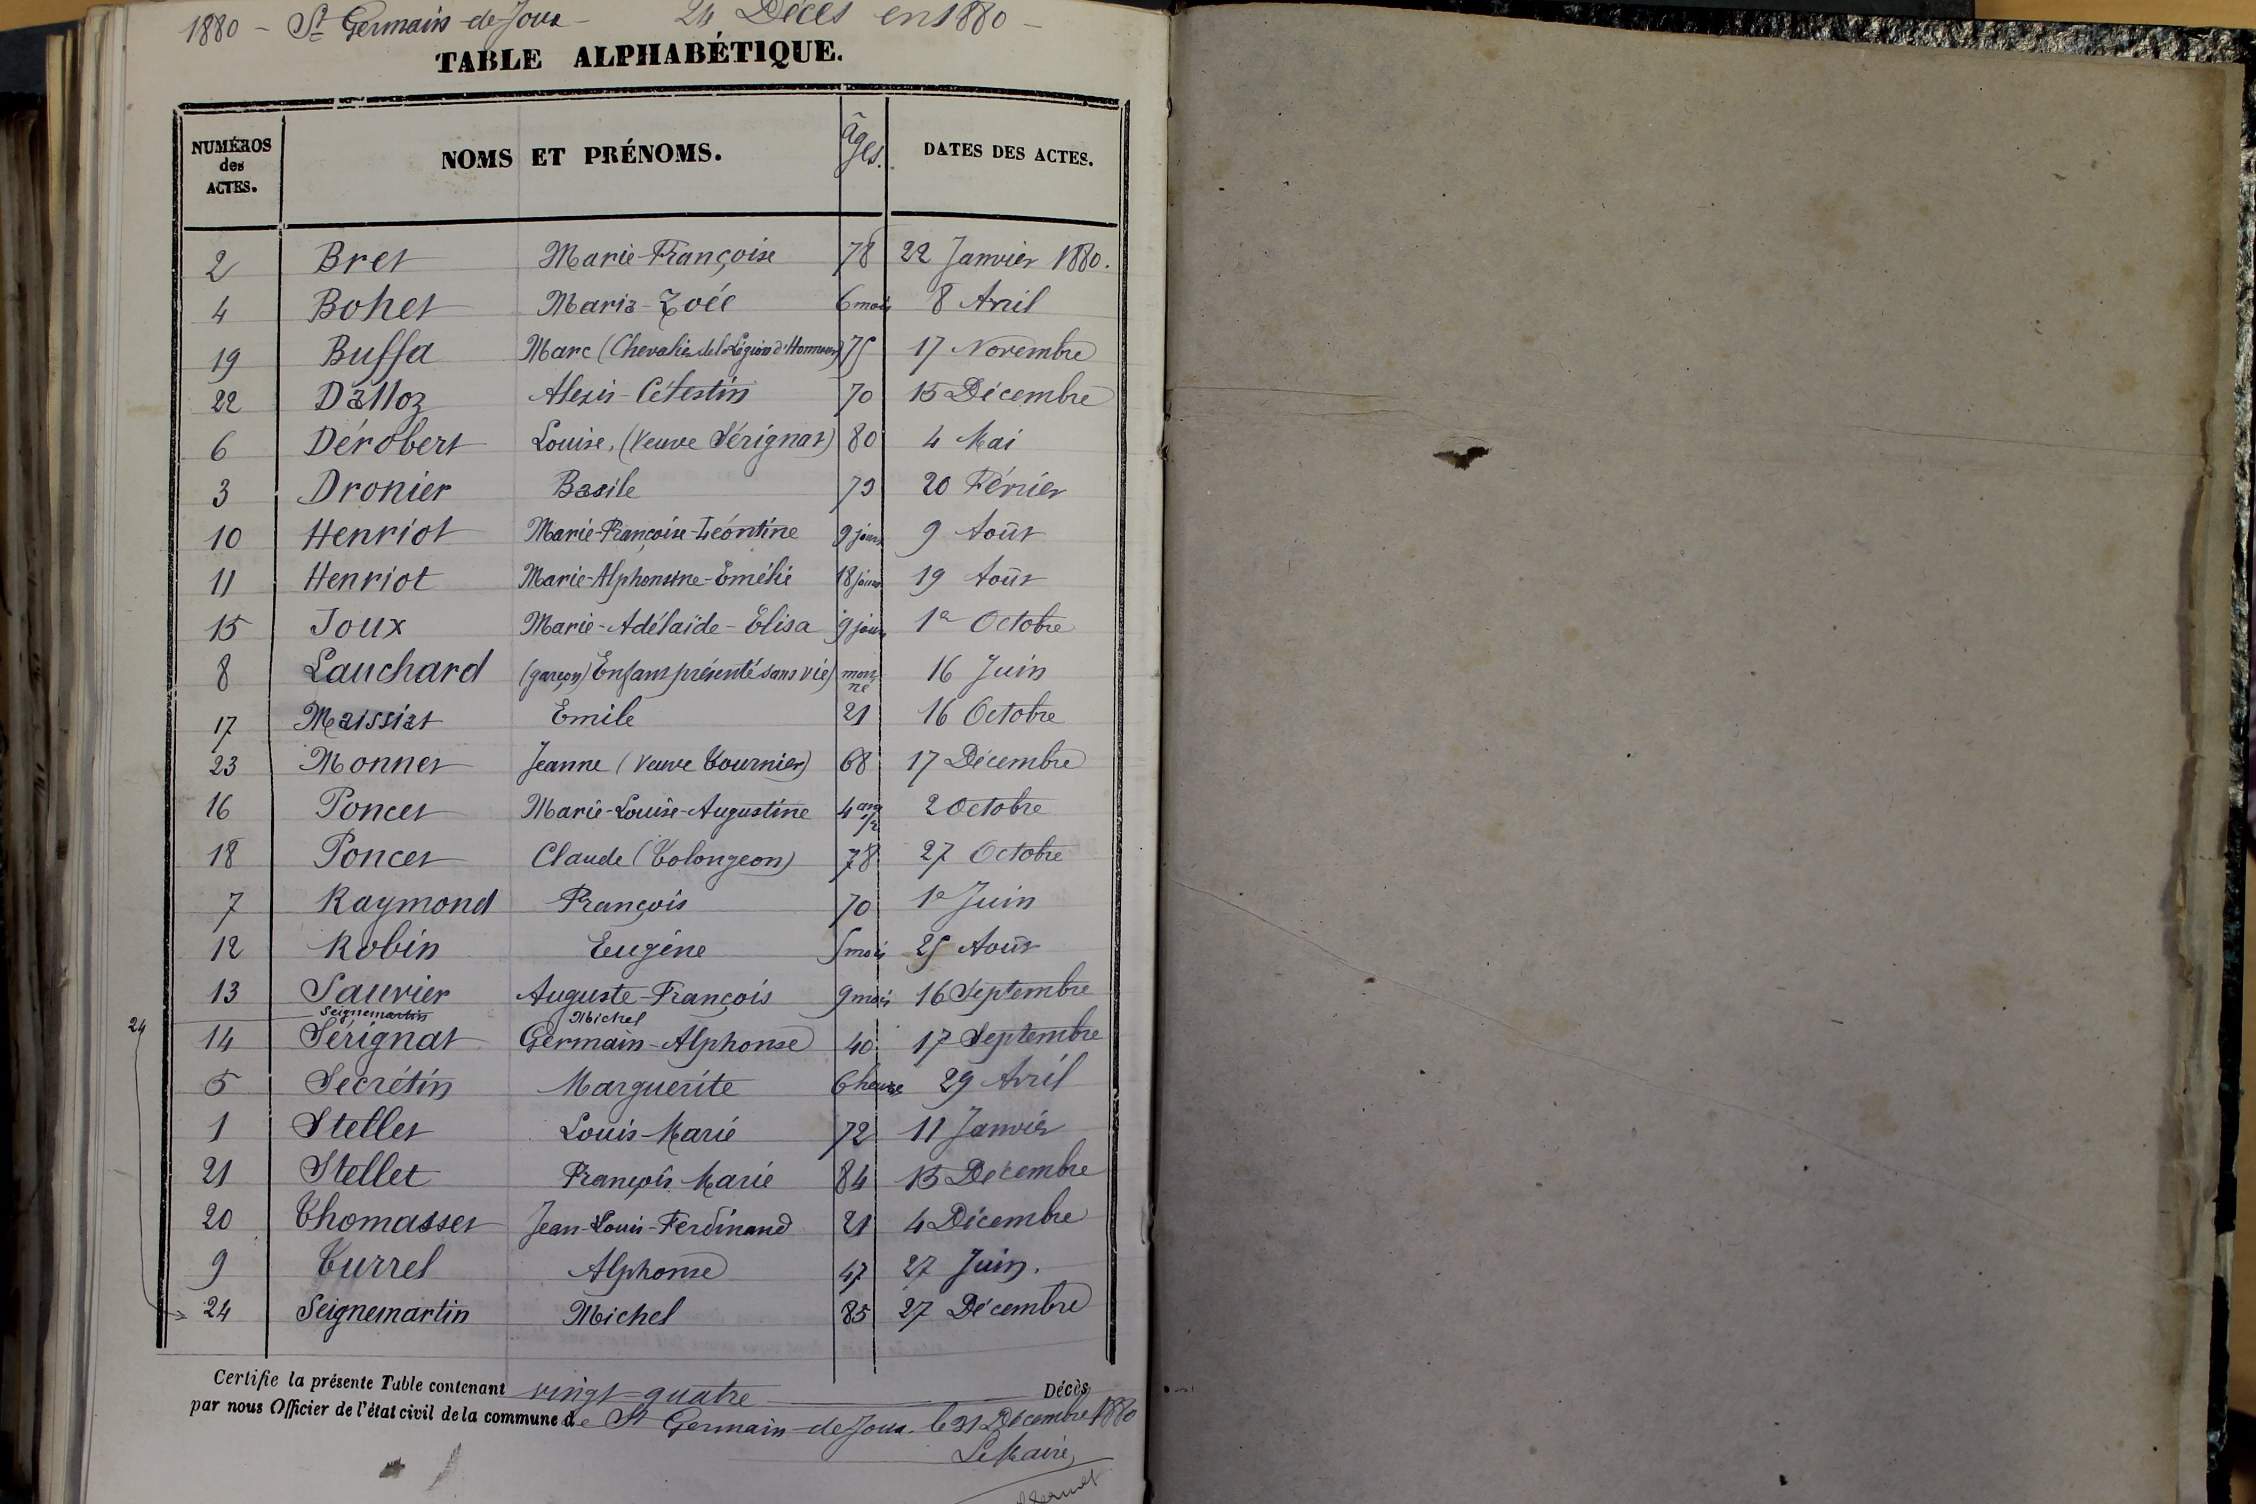 1880 - St Germain-de-Joux - 24 Décès en 1880 -
TABLE ALPHABÉTIQUE.
NUMÉROS des ACTES. NOMS ET PRÉNOMS. âges. DATES DES ACTES.
2 Bret Marie-Françoise 78 22 Janvier 1880.
4 Bohet Maria-Zoée 6 mois 8 Avril
19 Buffa Marc (Chevalier de la Légion d'Honneur) 75 17 Novembre
22 Dalloz Alexis-Célestin 70 15 Décembre
6 Dérobert Louise, (Veuve Sérignat) 80 4 Mai
3 Dronier Basile 79 20 Février
10 Henriot Marie-Françoise-Léontine 9 jours 9 Août
11 Henriot Marie-Alphonsine-Emélie 18 jours 19 Août
15 Joux Marie-Adélaïde-Elisa 9 jours 1er Octobre
8 Lauchard (garçon) Enfant présenté sans vie) mort né 16 Juin
17 Maissiat Emile 21 16 Octobre
23 Monnet Jeanne (Veuve Tournier) 68 17 Décembre
16 Poncet Marie-Louise-Augustine 4 ans 1/2 2 Octobre
18 Poncet Claude (Tolongeon) 78 27 Octobre
7 Raymond François 70 1er Juin
12 Robin Eugène 5 mois 25 Août
13 Sauvier Auguste-François 9 mois 16 Septembre
24 Seignemartin Michel
14 Sérignat Germain-Alphonse 40 17 Septembre
5 Secrétin Marguerite 6 heures 29 Avril
1 Stellet Louis Marie 72 11 Janvier
21 Stellet François Marie 84 13 Décembre
20 Thomasset Jean-Louis-Ferdinand 21 4 Décembre
9 Turrel Alphonse 47 27 Juin.
24 Seignemartin Michel 85 27 Décembre
Certifie la présente Table contenant vingt-quatre Décès
par nous Officier de l'état civil de la commune de St Germain-de-Joux. le 31 Décembre 1880
Le Maire,